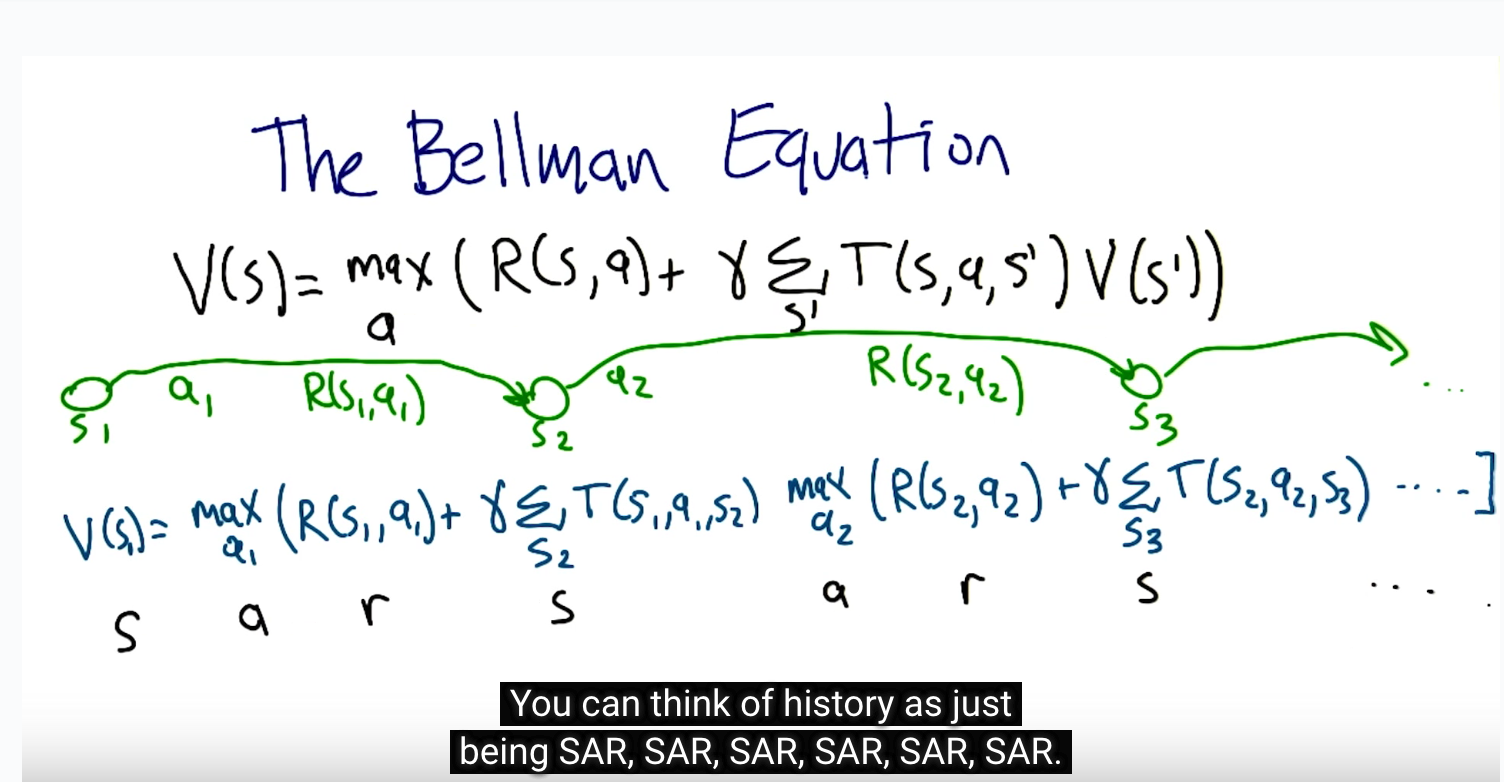 The Bellman Equation
V(s)= max (R(s,a)+ γ Σ T(s,a,s') V(s'))
a s'
a₁ R(s₁,a₁) a₂ R(s₂,a₂) ...
s₁ s₂ s₃
V(s₁)= max (R(s₁,a₁)+ γ Σ T(s₁,a₁,s₂) max (R(s₂,a₂)+γ Σ T(s₂,a₂,s₃) ....]
a₁ s₂ a₂ s₃
s a r s a r s ....
You can think of history as just
being SAR, SAR, SAR, SAR, SAR, SAR.